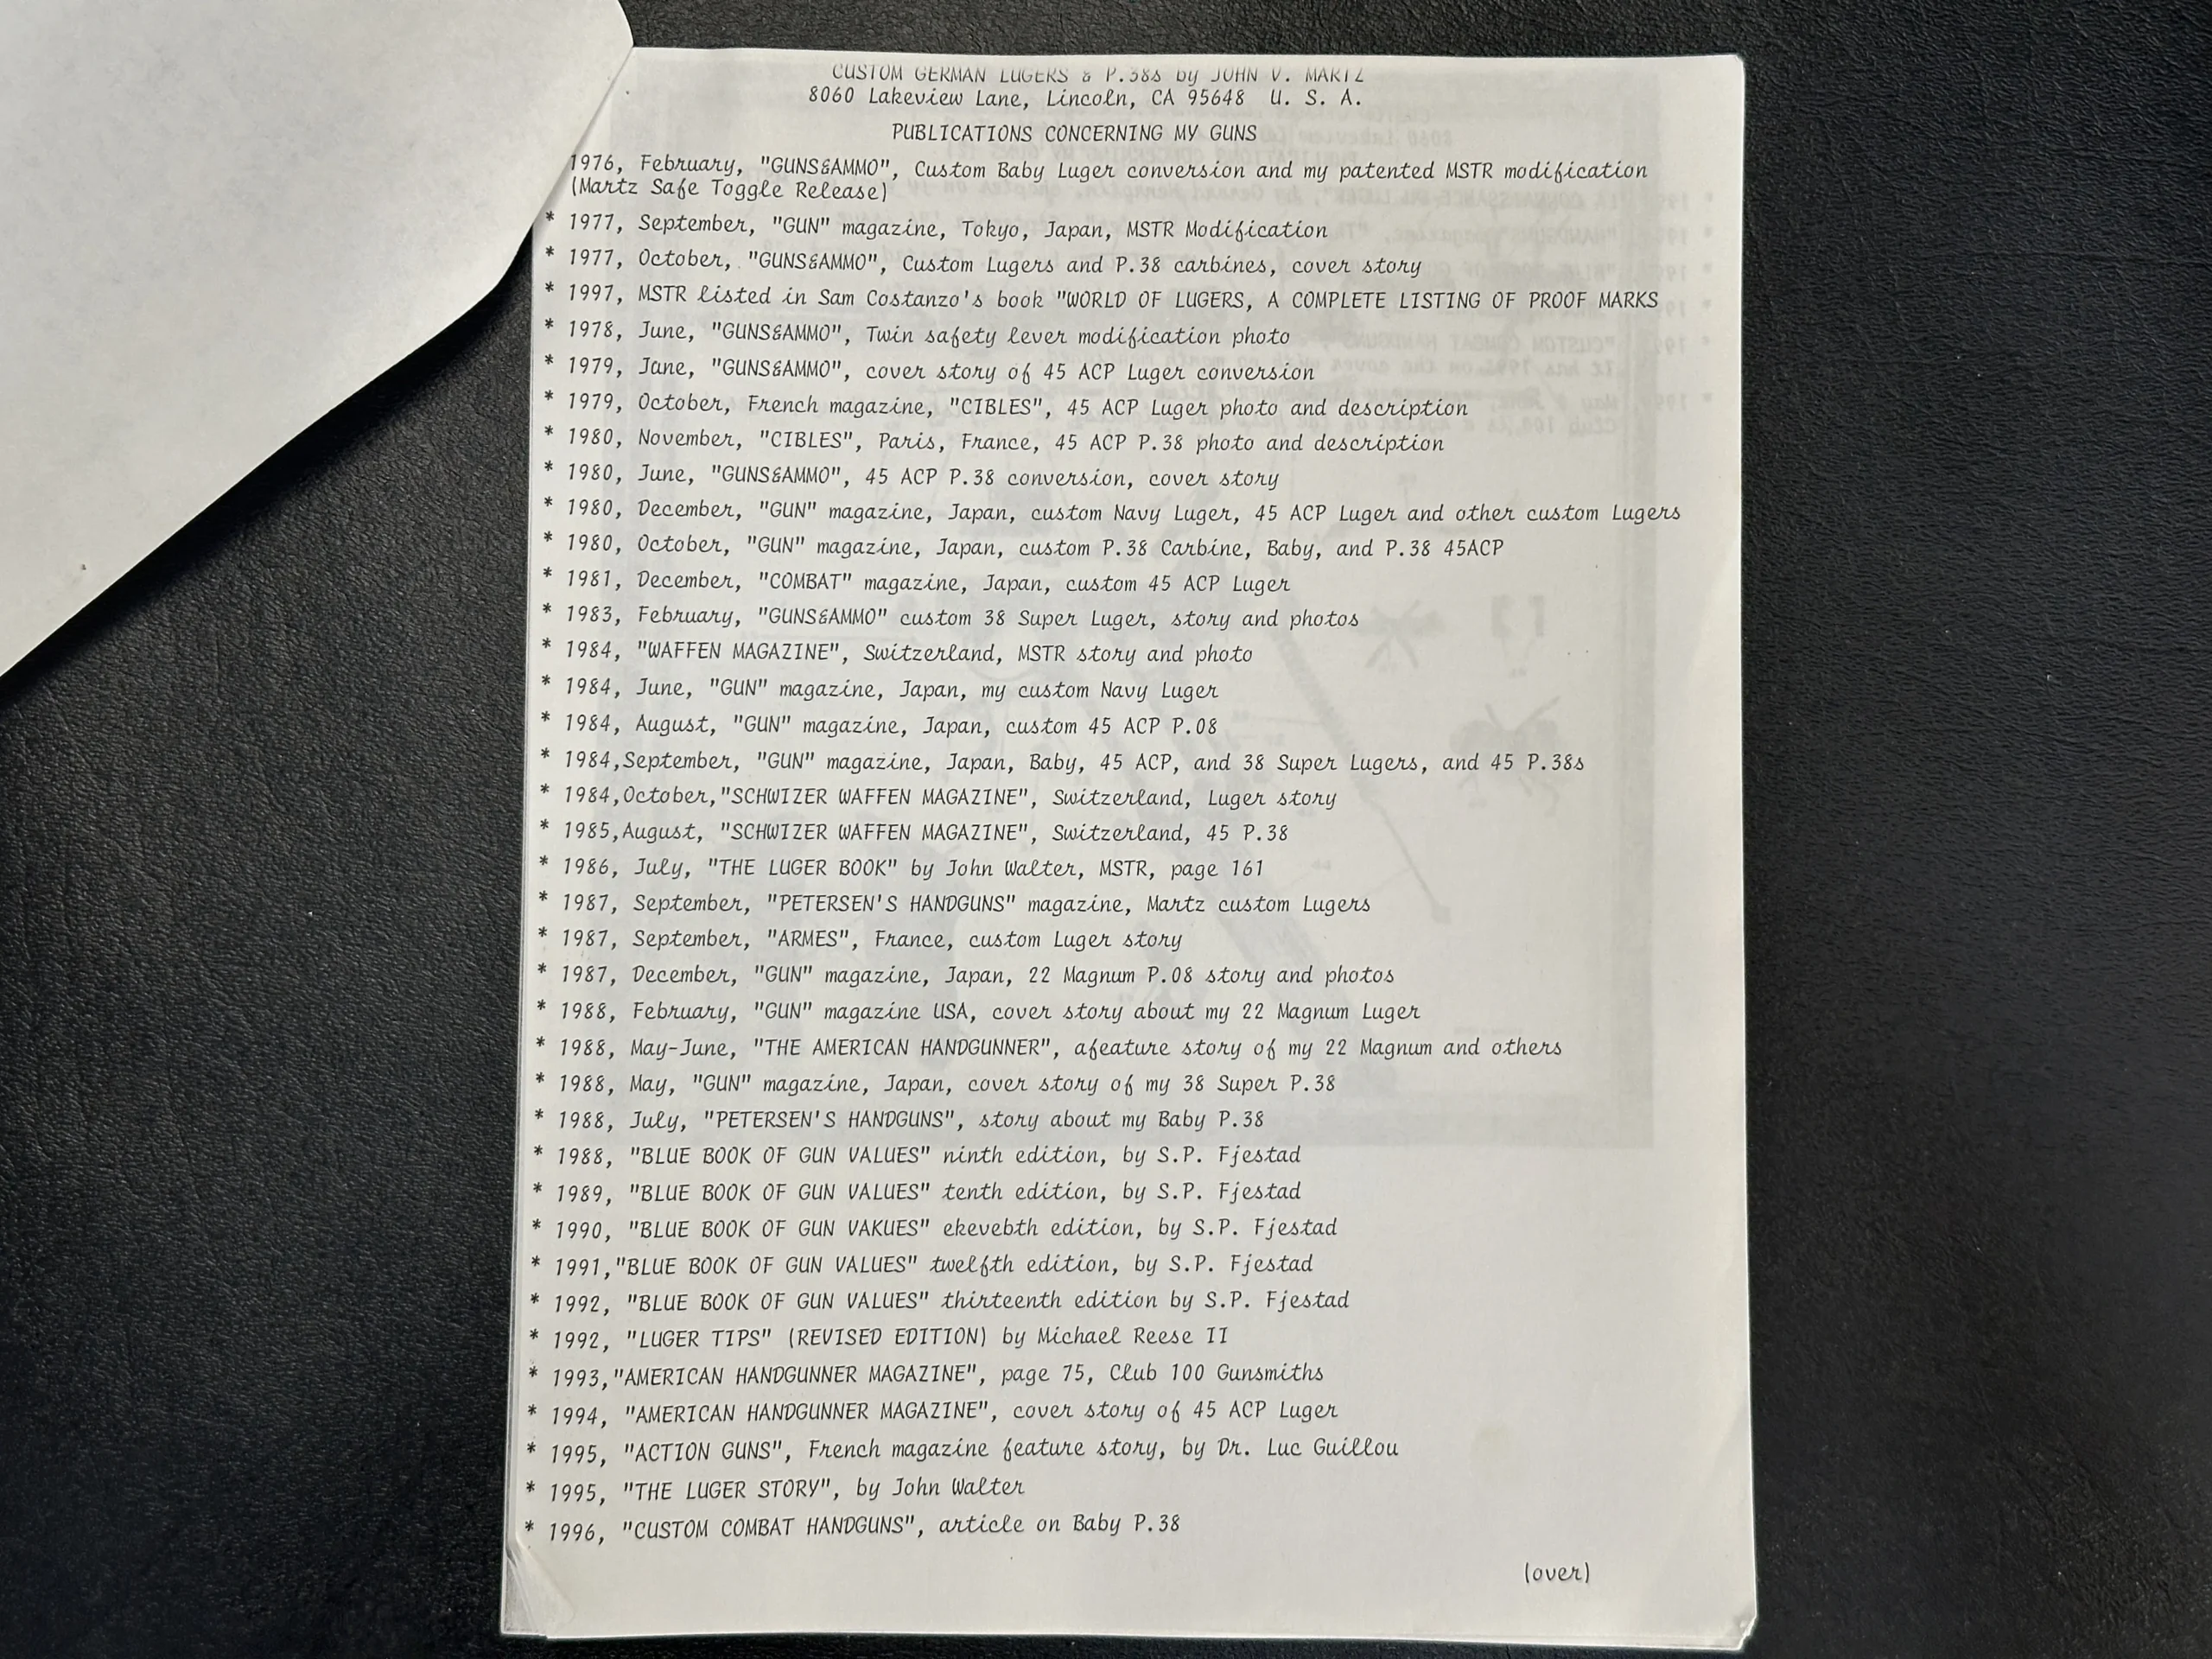 CUSTOM GERMAN LUGERS & P.38s by JOHN V. MARTZ
8060 Lakeview Lane, Lincoln, CA 95648 U. S. A.
PUBLICATIONS CONCERNING MY GUNS
1976, February, "GUNS&AMMO", Custom Baby Luger conversion and my patented MSTR modification
(Martz Safe Toggle Release)
* 1977, September, "GUN" magazine, Tokyo, Japan, MSTR Modification
* 1977, October, "GUNS&AMMO", Custom Lugers and P.38 carbines, cover story
* 1997, MSTR listed in Sam Costanzo's book "WORLD OF LUGERS, A COMPLETE LISTING OF PROOF MARKS
* 1978, June, "GUNS&AMMO", Twin safety lever modification photo
* 1979, Jane, "GUNS&AMMO", cover story of 45 ACP Luger conversion
* 1979, October, French magazine, "CIBLES", 45 ACP Luger photo and description
* 1980, November, "CIBLES", Paris, France, 45 ACP P.38 photo and description
* 1980, June, "GUNS&AMMO", 45 ACP P.38 conversion, cover story
* 1980, December, "GUN" magazine, Japan, custom Navy Luger, 45 ACP Luger and other custom Lugers
* 1980, October, "GUN" magazine, Japan, custom P.38 Carbine, Baby, and P.38 45ACP
* 1981, December, "COMBAT" magazine, Japan, custom 45 ACP Luger
* 1983, February, "GUNS&AMMO" custom 38 Super Luger, story and photos
* 1984, "WAFFEN MAGAZINE", Switzerland, MSTR story and photo
* 1984, June, "GUN" magazine, Japan, my custom Navy Luger
* 1984, August, "GUN" magazine, Japan, custom 45 ACP P.08
* 1984,September, "GUN" magazine, Japan, Baby, 45 ACP, and 38 Super Lugers, and 45 P.38s
* 1984,October,"SCHWIZER WAFFEN MAGAZINE", Switzerland, Luger story
* 1985,August, "SCHWIZER WAFFEN MAGAZINE", Switzerland, 45 P.38
* 1986, July, "THE LUGER BOOK" by John Walter, MSTR, page 161
* 1987, September, "PETERSEN'S HANDGUNS" magazine, Martz custom Lugers
* 1987, September, "ARMES", France, custom Luger story
* 1987, December, "GUN" magazine, Japan, 22 Magnum P.08 story and photos
* 1988, February, "GUN" magazine USA, cover story about my 22 Magnum Luger
* 1988, May-June, "THE AMERICAN HANDGUNNER", afeature story of my 22 Magnum and others
* 1988, May, "GUN" magazine, Japan, cover story of my 38 Super P.38
* 1988, July, "PETERSEN'S HANDGUNS", story about my Baby P.38
* 1988, "BLUE BOOK OF GUN VALUES" ninth edition, by S.P. Fjestad
* 1989, "BLUE BOOK OF GUN VALUES" tenth edition, by S.P. Fjestad
* 1990, "BLUE BOOK OF GUN VAKUES" ekevebth edition, by S.P. Fjestad
* 1991,"BLUE BOOK OF GUN VALUES" twelfth edition, by S.P. Fjestad
* 1992, "BLUE BOOK OF GUN VALUES" thirteenth edition by S.P. Fjestad
* 1992, "LUGER TIPS" (REVISED EDITION) by Michael Reese II
* 1993,"AMERICAN HANDGUNNER MAGAZINE", page 75, Club 100 Gunsmiths
* 1994, "AMERICAN HANDGUNNER MAGAZINE", cover story of 45 ACP Luger
* 1995, "ACTION GUNS", French magazine feature story, by Dr. Luc Guillou
* 1995, "THE LUGER STORY", by John Walter
* 1996, "CUSTOM COMBAT HANDGUNS", article on Baby P.38
(over)